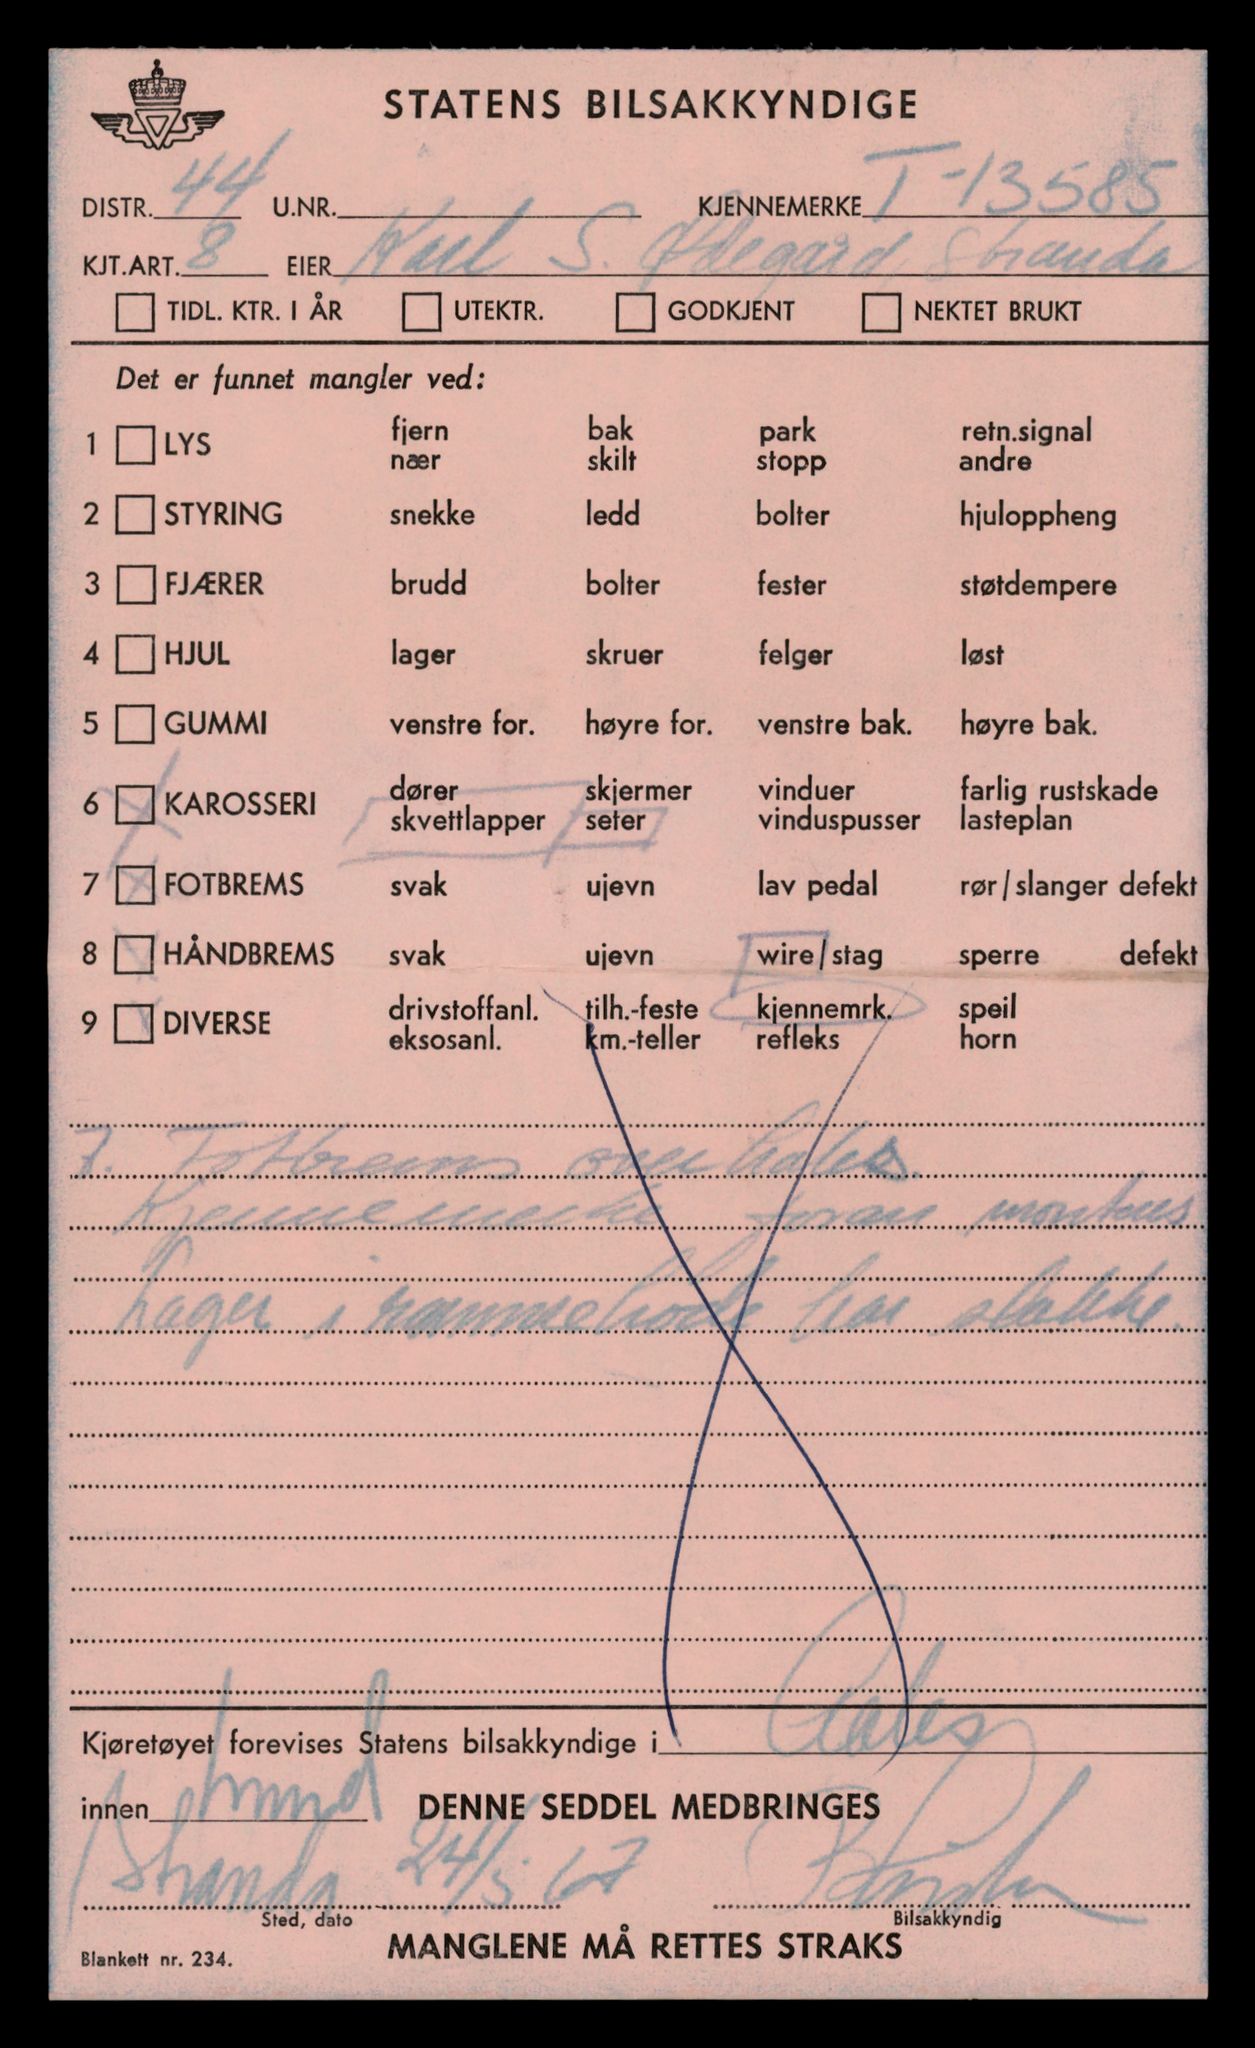 STATENS BILSAKKYNDIGE
DISTR. 44 U.NR. KJENNEMERKE T-13585
KJT.ART. 8 EIER Karl S. Ødegård Stranda
TIDL. KTR. I ÅR UTEKTR. GODKJENT NEKTET BRUKT
Det er funnet mangler ved:
1 LYS fjern bak park retn.signal
nær skilt stopp andre
2 STYRING snekke ledd bolter hjuloppheng
3 FJÆRER brudd bolter fester støtdempere
4 HJUL lager skruer felger løst
5 GUMMI venstre for. høyre for. venstre bak. høyre bak.
6 KAROSSERI dører skjermer vinduer farlig rustskade
skvettlapper seter vinduspusser lasteplan
7 FOTBREMS svak ujevn lav pedal rør/slanger defekt
8 HÅNDBREMS svak ujevn wire/stag sperre defekt
9 DIVERSE drivstoffanl. tilh.-feste kjennemrk. speil
eksosanl. km.-teller refleks horn
7. Fotbrems overhales.
Kjennemerke foran monteres
Lager i rammehode har slakke.
Kjøretøyet forevises Statens bilsakkyndige i
innen DENNE SEDDEL MEDBRINGES
Stranda 24/5 67
Sted, dato Bilsakkyndig
MANGLENE MÅ RETTES STRAKS
Blankett nr. 234.